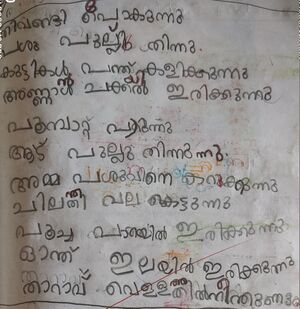 തീവണ്ടി പോകുന്നു
പശു പുല്ല് തിന്നു.
കുട്ടികൾ പന്ത് കളിക്കുന്നു
അണ്ണാൻ ചക്കൽ ഇരിക്കുന്നു
പൂമ്പാറ്റ പറുന്നു
ആട് പുല്ലു തിന്നുന്നു.
അമ്മ പശുവിനെ കറക്കുന്നു
ചിലന്തി വല കെട്ടുന്നു
പൂച്ച പായയിൽ ഇരിക്കുന്നു
ഓന്ത് ഇലയിൽ ഇരിക്കുന്നു
താറാവ് വെള്ളത്തിൽ നീന്തുണു